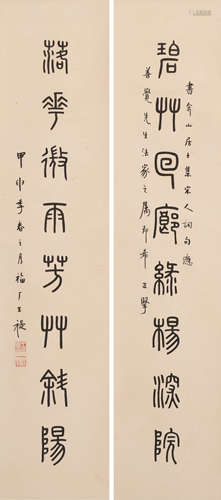 碧艸回廊綠楊深院
書弇山居士集宋人詞句應
善覺先生法家之屬即希正
落華微雨芳艸斜陽
甲申季春之月福厂王禔